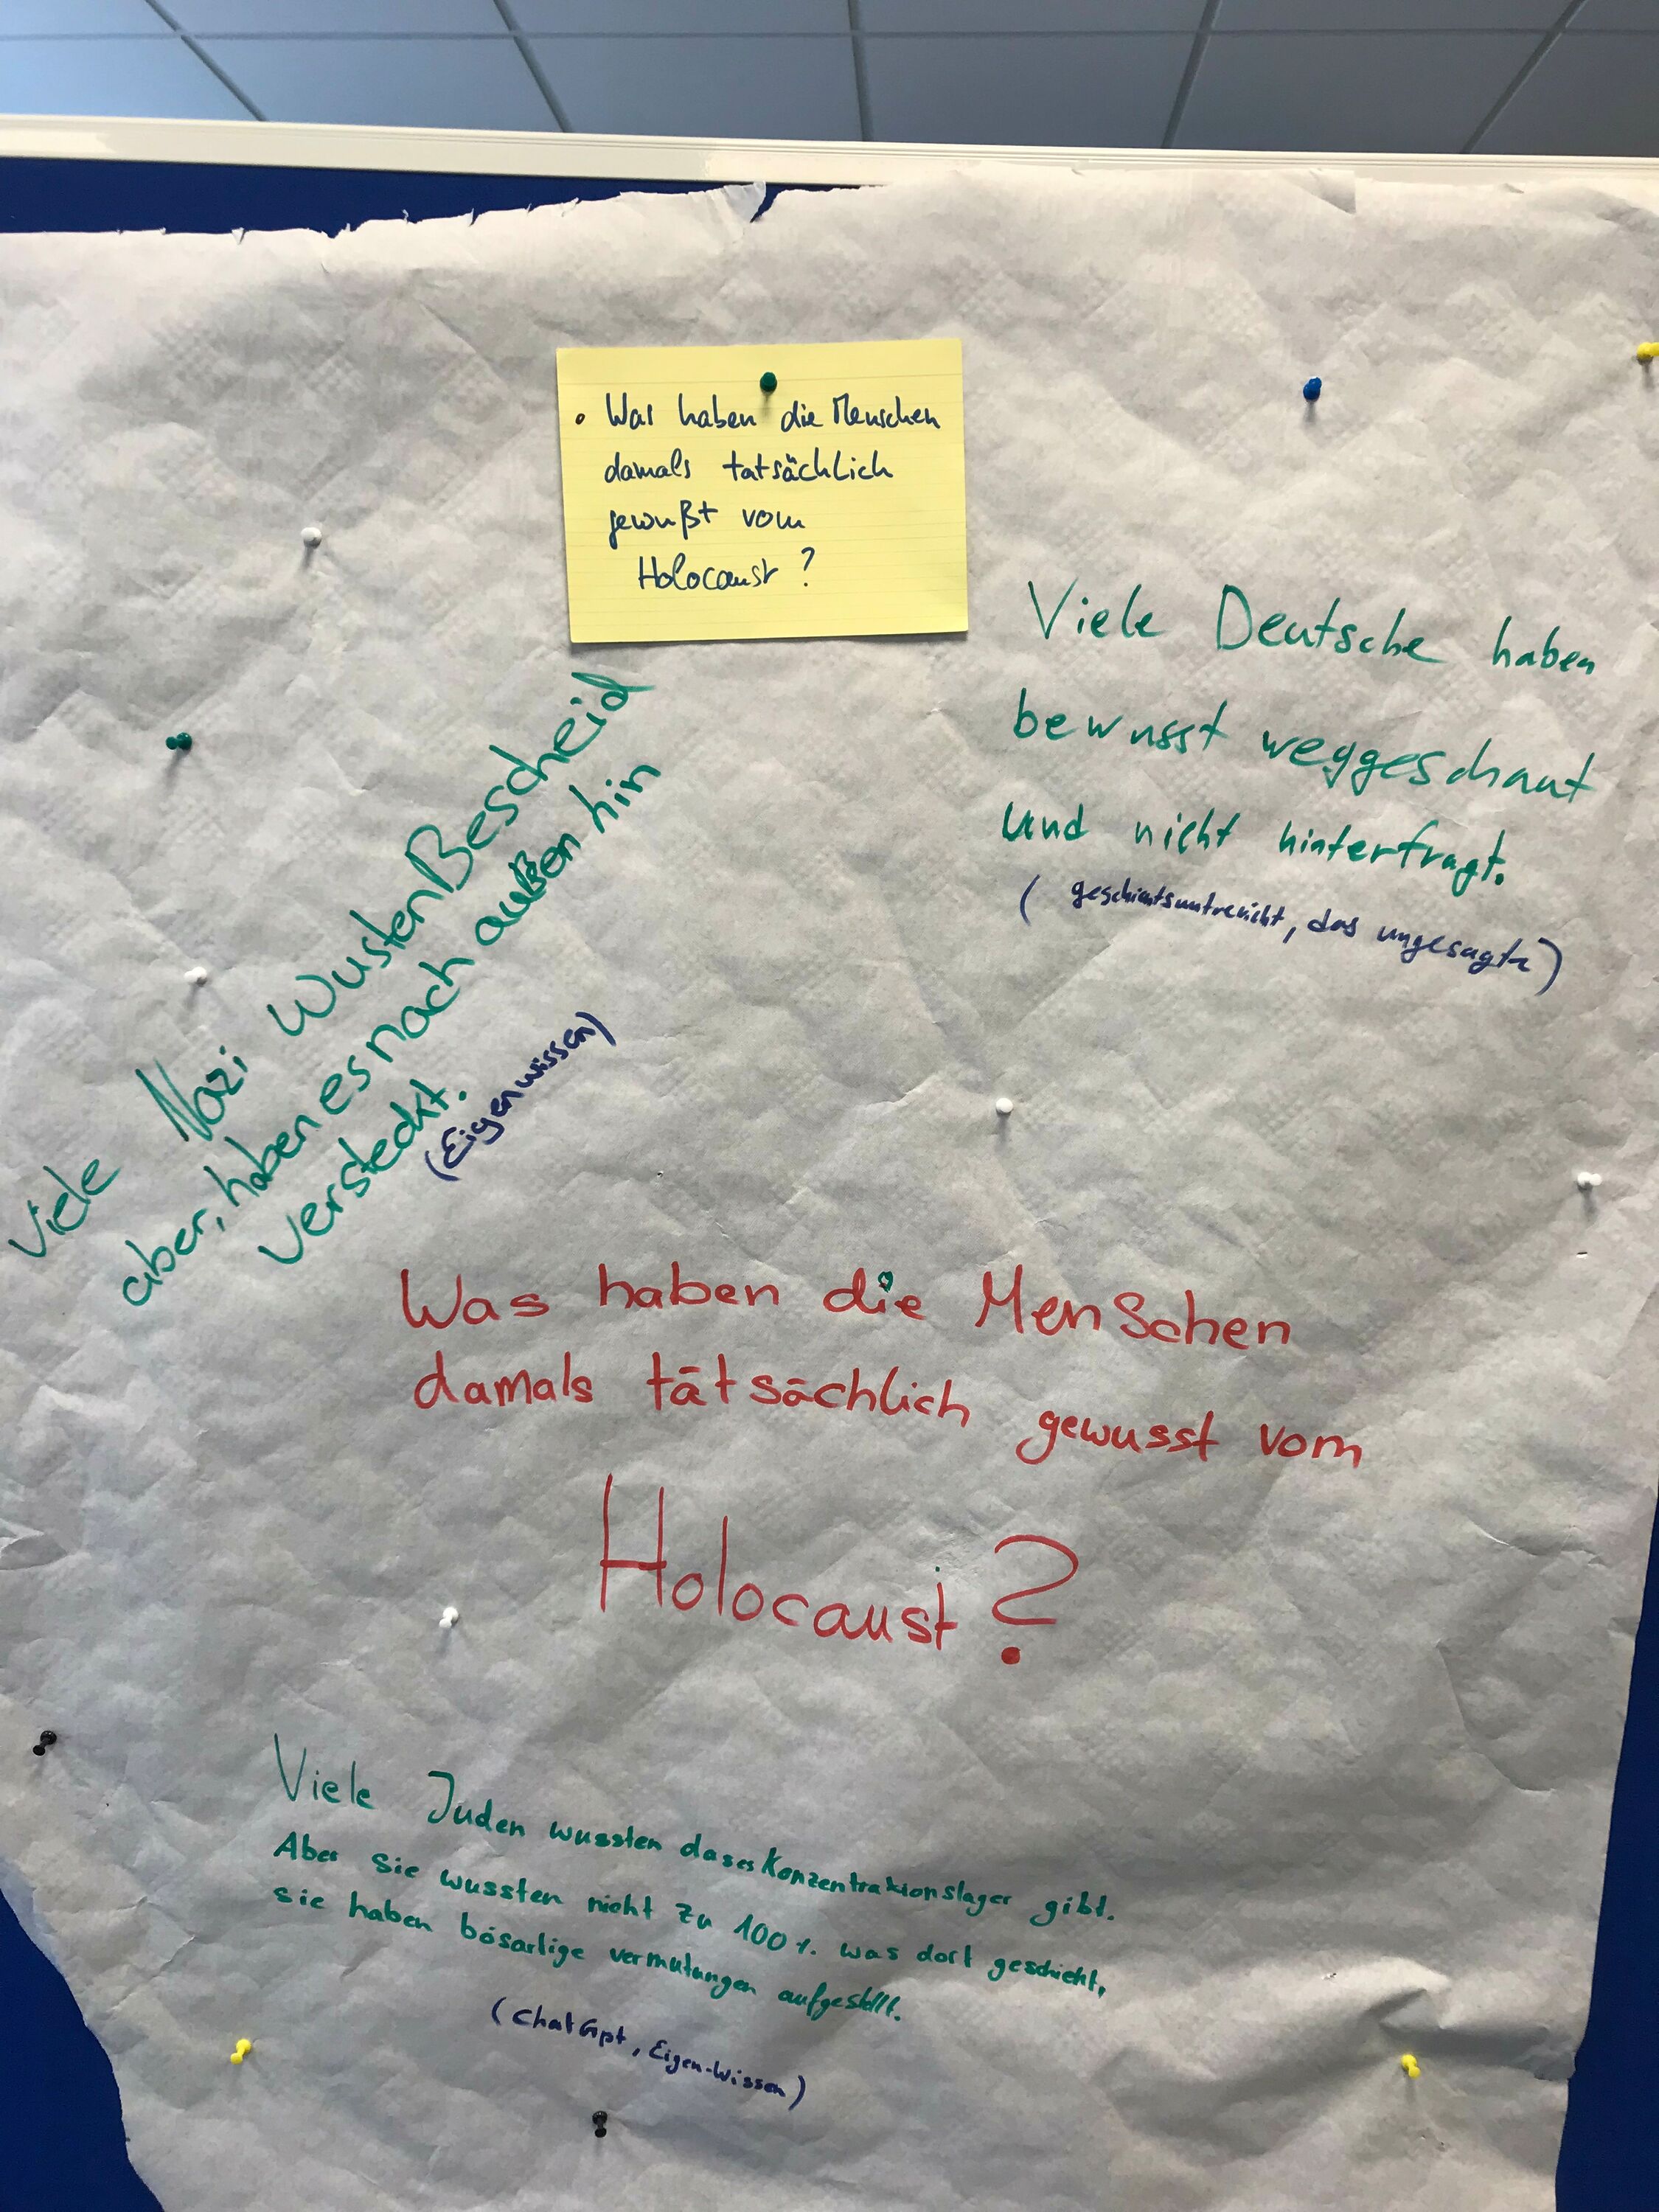 • Was haben die Menschen
damals tatsächlich
gewußt vom
Holocaust?
Viele Deutsche haben
bewusst weggeschaut
und nicht hinterfragt.
(geschichtsuntrericht, das ungesagte)
Viele Nazi wusten Bescheid
aber, haben es nach außen hin
versteckt.
(Eigenwissen)
Was haben die Menschen
damals tätsächlich gewusst vom
Holocaust?
Viele Juden wussten das es Konzentrationslager gibt.
Aber sie wussten nicht zu 100%. was dort geschieht,
sie haben bösartige vermutungen aufgestellt.
(ChatGpt, Eigen-Wissen)